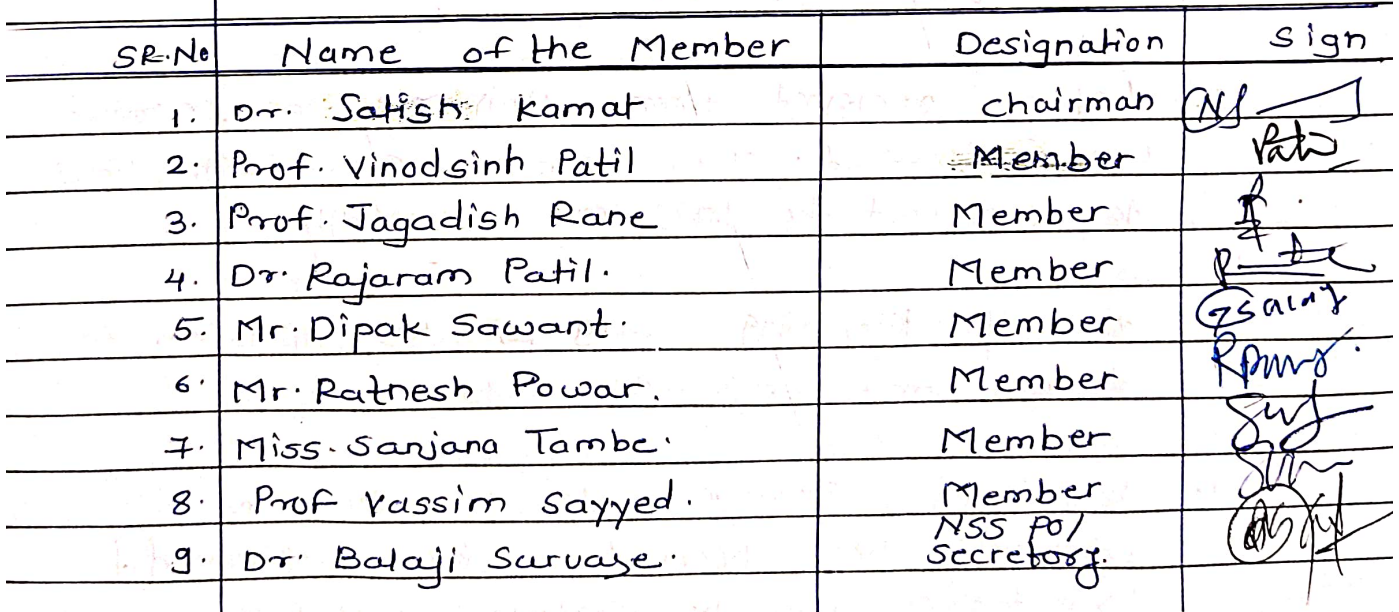 SR.No Name of the Member Designation Sign
1. Dr. Satish Kamat Chairman
2. Prof. Vinodsinh Patil Member
3. Prof. Jagadish Rane Member
4. Dr. Rajaram Patil. Member
5. Mr. Dipak Sawant. Member
6. Mr. Ratnesh Powar. Member
7. Miss. Sanjana Tambe. Member
8. Prof Vassim Sayyed. Member
NSS PO/
9. Dr. Balaji Survase. Secretory.